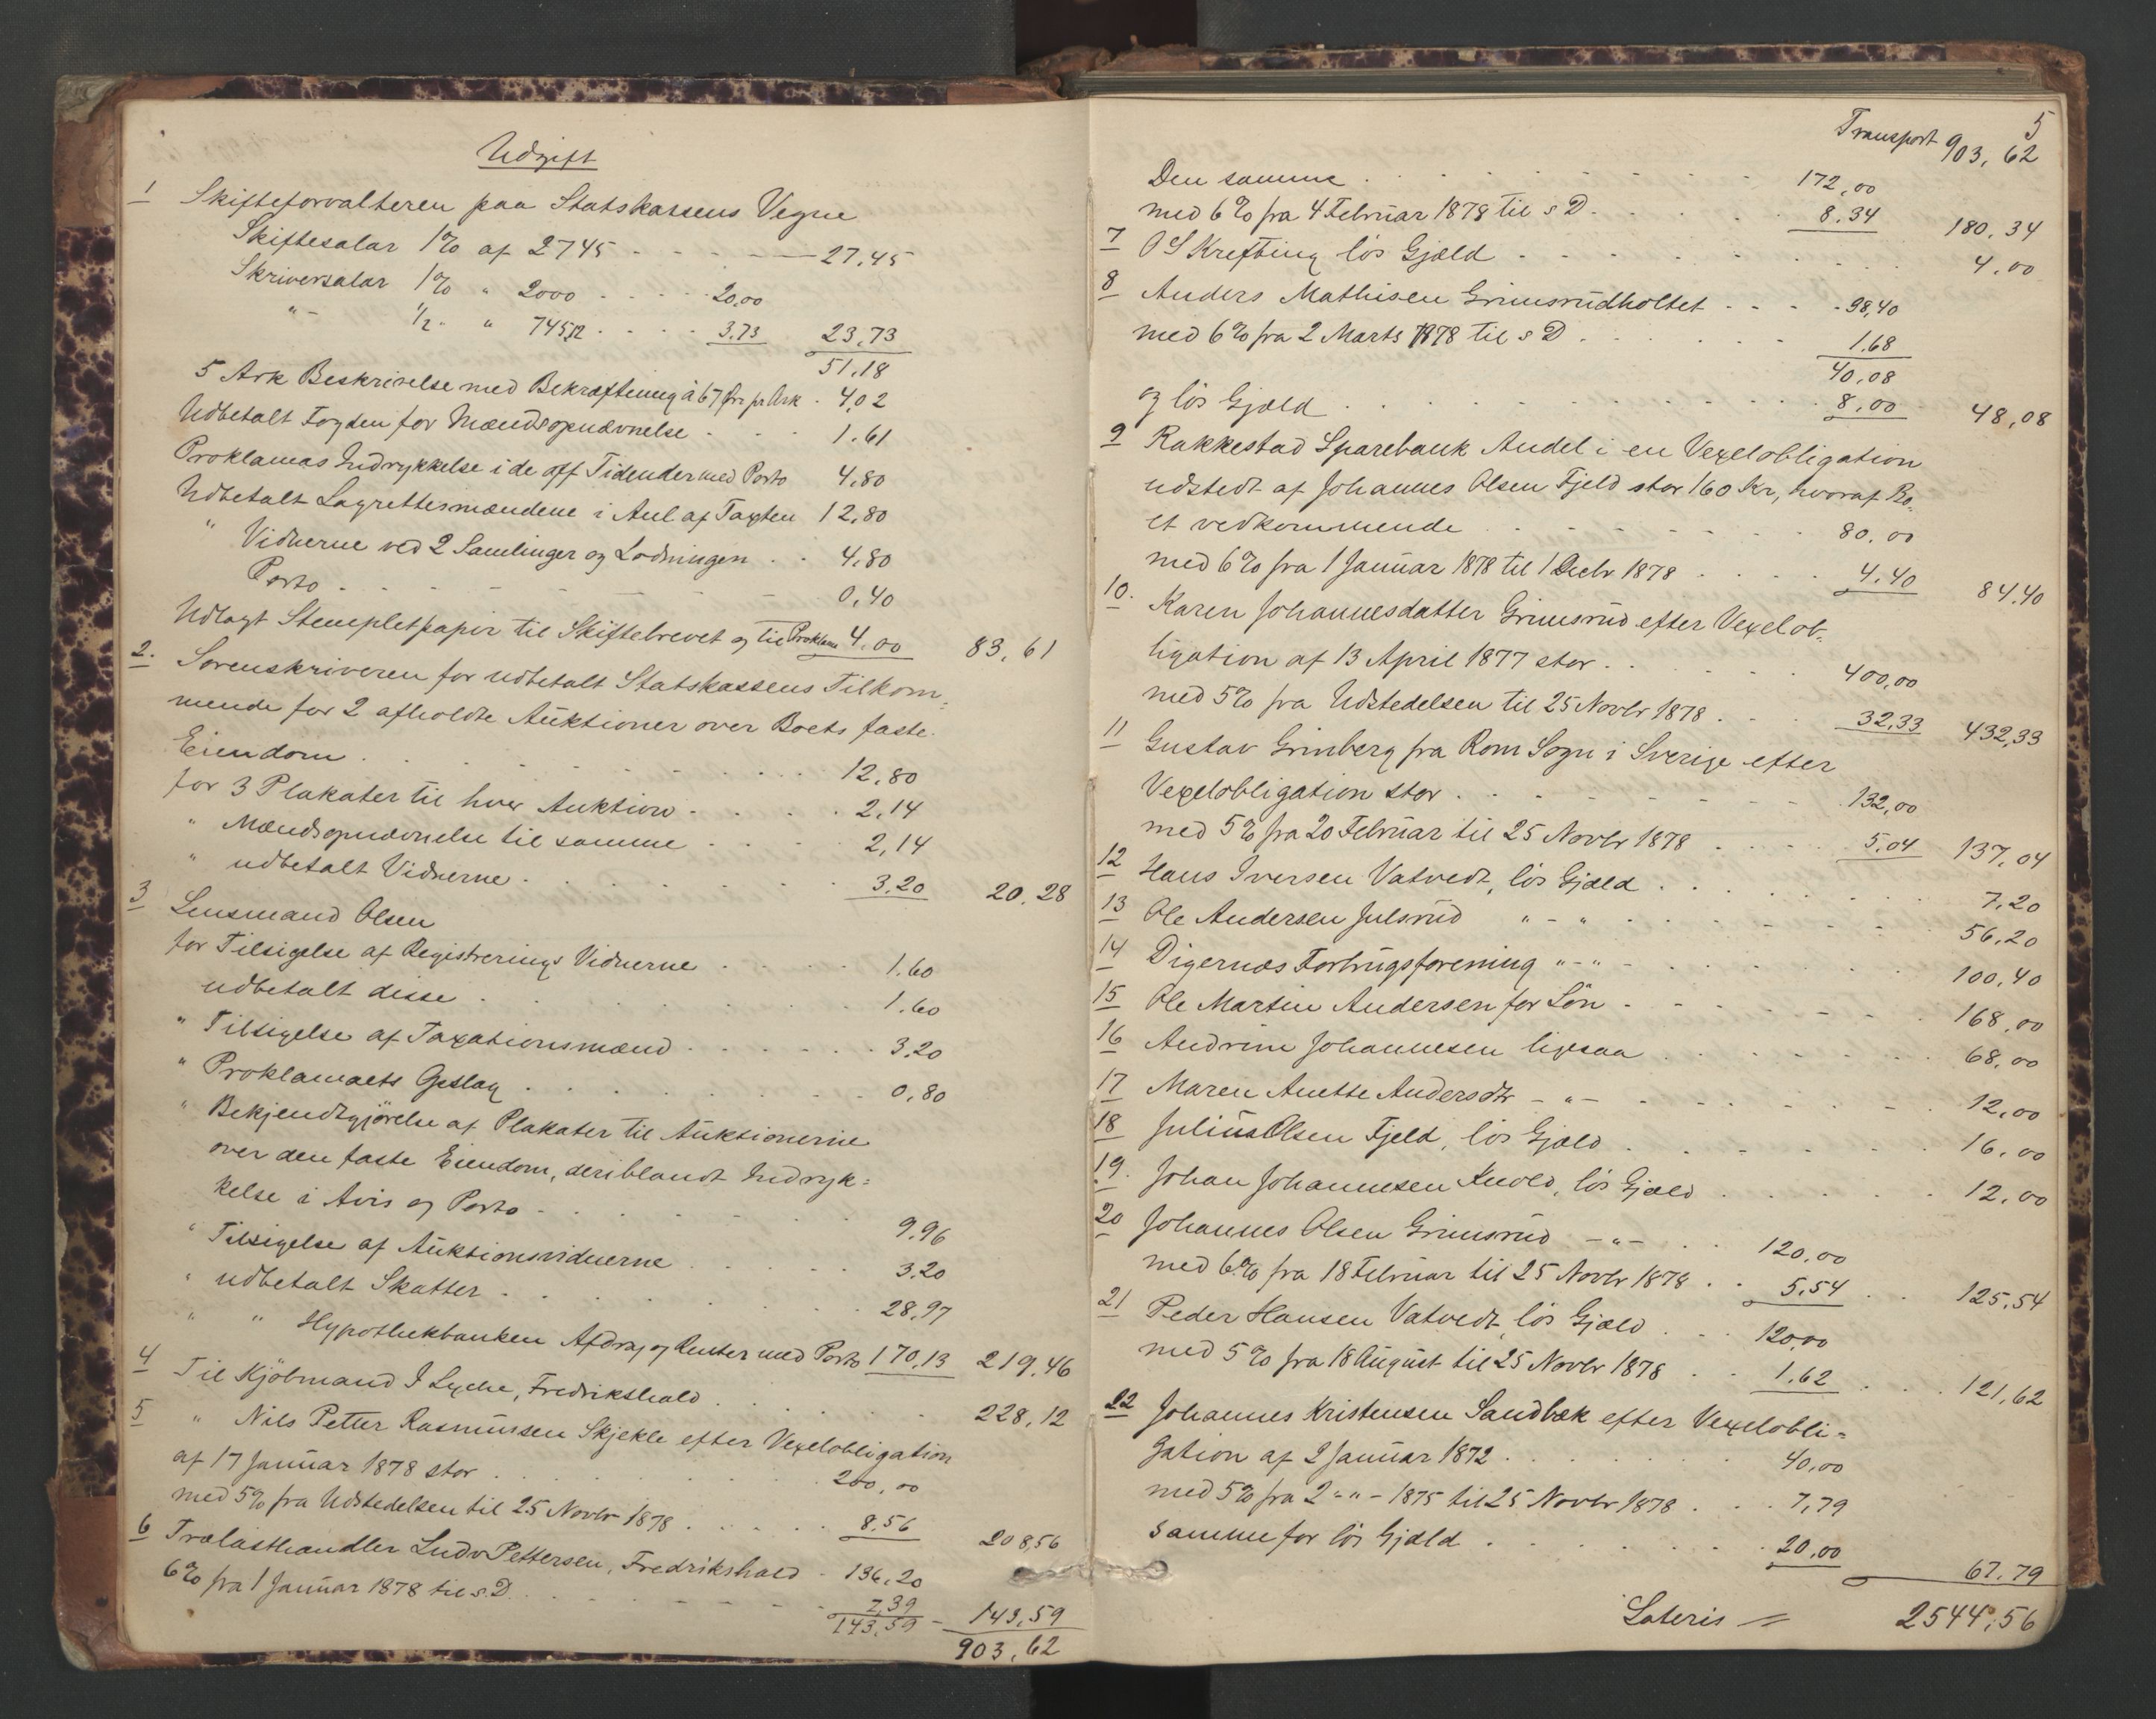 Udgift
1 Skifteforvalteren paa Statskassens Vegne
Skiftesalar 1% af 2745 27,45
Skriversalar 1% " 2000 20,00
" - 1/2 " " 745,12 3,73 23,73
51,18
5 Ark Beskrivelse med Bekræftning à 67 Øre pr Ark 4,02
Udbetalt Fogden for Mændsopnævnelse 1.61
Proklamas Indrykkelse i de off Tidender med Porto 4,80
Udbetalt Lagrettesmændene i Anl af Taxten 12,80
" Vidnerne ved 2 Samlinger og Lodningen 4,80
Porto 0,40
Udlagt Stempletpapir til Skiftebrevet og til Proklama 4,00 83,61
2. Sorenskriveren for udbetalt Statskassens Tilkom-
mende for 2 afholdte Auktioner over Boets faste
Eiendom 12,80
for 3 Plakater til hver Auktion 2,14
" Mændsopnævnelse til samme 2,14
" udbetalt Vidnerne 3,20 20,28
3 Lensmand Olsen
for Tilsigelse af Registrerings Vidnerne 1.60
udbetalt disse 1.60
" Tilsigelse af Taxationsmænd 3,20
" Proklamaets Opslag 0,80
" Bekjendtgjørelse af Plakater til Auktionerne
over den faste Eiendom, deriblandt Indryk=
kelse i Avis og Porto 9,96
" Tilsigelse af Auktionsvidnerne 3,20
" udbetalt Skatter 28,97
" " Hypothekbanken Afdrag og Renter med Porto 170,13 219,46
4 Til Kjöbmand I Lyche, Fredrikshald 228,12
5 " Nils Petter Rasmussen Skjekle efter Vexelobligation
af 17 Januar 1878 stor 200,00
med 5% fra Udstedelsen til 25 Novbr 1878 8,56 208,56
6 Trælasthandler Ludv Pettersen, Fredrikshald 136,20
6% fra 1 Januar 1878 til s. D. 7,39
143,59 - 143,59
903,62
5
Transport 903,62
Den samme 172,00
med 6% fra 4 Februar 1878 til s D. 8,34 180,34
7 O S Krefting lös Gjæld 4,00
8 Anders Mathisen Grimsrudholtet 98,40
med 6% fra 2 Marts 1878 til s D 1.68
40,08
og lös Gjæld 8,00 48,08
9 Rakkestad Sparebank Andel i en Vexelobligation
udstedt af Johannes Olsen Fjeld stor 160 Kr, hvoraf Bo-
et vedkommende 80,00
med 6% fra 1 Januar 1878 til 1 Decbr 1878 4,40 84,40
10. Karen Johannesdatter Grimsrud efter Vexelob-
ligation af 13 April 1877 stor 400,00
med 5% fra Udstedelsen til 25 Novbr 1878 32,33 432,33
11 Gustav Grinberg fra Rom Sogn i Sverige efter
Vexelobligation stor 132,00
med 5% fra 20 Februar til 25 Novbr 1878 5,04 137,04
12 Hans Iversen Vatvedt, lös Gjæld 7,20
13 Ole Andersen Julsrud " - " 56,20
14 Digernæs Forbrugsforening " - " 100,40
15 Ole Martin Andersen for Lön 168,00
16 Andrine Johannesen ligesaa 68,00
17 Maren Anette Andersdtr - " - 12,00
18 Julius Olsen Fjeld, lös Gjæld 16,00
19. Johan Johannesen Knold, lös Gjæld 12,00
20 Johannes Olsen Grimsrud - " - 120,00
med 6% fra 18 Februar til 25 Novbr 1878 5,54 125,54
21 Peder Hansen Vatvedt lös Gjæld 120,00
med 5% fra 18 August til 25 Novbr 1878 1,62 121,62
22 Johannes Kristensen Sandbæk efter Vexelobli=
gation af 2 Januar 1872 40,00
med 5% fra 2 - " - 1875 til 25 Novbr 1878 7,79
Samme for lös Gjæld 20,00 67,79
Lateris = 2544,56